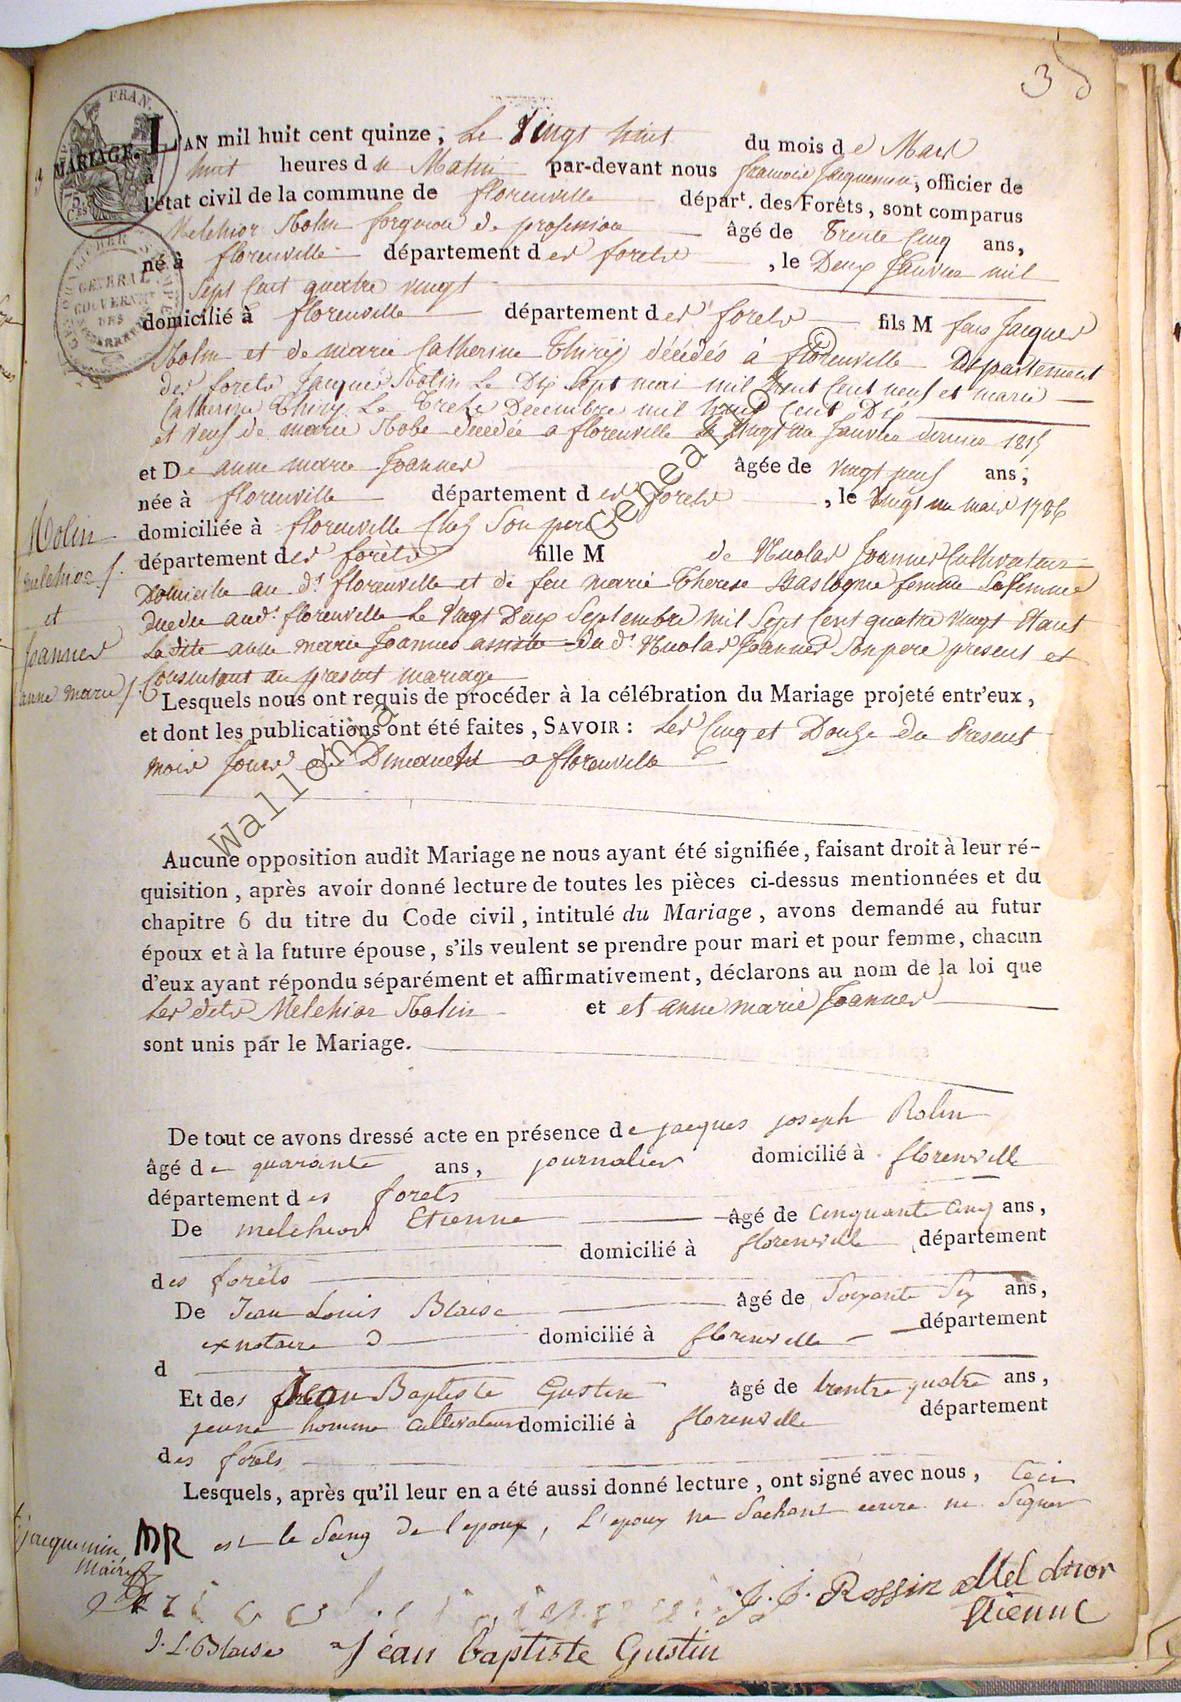 3
FRAN.
MARIAGE.
3
L'AN mil huit cent quinze, Le Vingt huit du mois de Mars
à huit heures du Matin par-devant nous françois Jacquemin, officier de
l'état civil de la commune de florenville départ. des Forêts, sont comparus
Melchior Rolin forgeron de profession âgé de Trente Cinq ans,
né à florenville département des forets, le Deux Janvier mil
Sept Cent quatre vingt
domicilié à florenville département des forets fils M feus Jacques
Rolin et de marie Catherine Thiry décédés à florenville Departement
des forets Jacques Rolin Le Dix Sept mai mil huit Cent neuf et marie
Catherine Thiry Le Treize Decembre mil huit Cent Dix
et veuf de marie Robe decédée a florenville le Vingt un Janvier dernier 1815
et De anne marie Joannes âgée de vingt neuf ans,
née à florenville département des forets, le Vingt un mars 1786
domiciliée à florenville Chez Son pere
département des forêts fille M de Nicolas Joannes Cultivateur
Domicilie au dt florenville et de feu marie Therese Hastogne femme Sa femme
audt florenville Le Vingt Deux Septembre mil Sept Cent quatre Vingt
La dite anne marie Joannes assistée du dt Nicolas Joannes Son pere present et
Consentant au present mariage
Rolin
melchior
et
Joannes
anne marie
Lesquels nous ont requis de procéder à la célébration du Mariage projeté entr'eux,
et dont les publications ont été faites, SAVOIR: Les Cinq et Douze du Present
mois Jours de Dimanche a florenville
Aucune opposition audit Mariage ne nous ayant été signifiée, faisant droit à leur ré-
quisition, après avoir donné lecture de toutes les pièces ci-dessus mentionnées et du
chapitre 6 du titre du Code civil, intitulé du Mariage, avons demandé au futur
époux et à la future épouse, s'ils veulent se prendre pour mari et pour femme, chacun
d'eux ayant répondu séparément et affirmativement, déclarons au nom de la loi que
Les dits Melchior Rolin et et anne marie Joannes
sont unis par le Mariage.
De tout ce avons dressé acte en présence de jacques joseph Rolin
âgé de quarante ans, journalier domicilié à florenville
département des forets
De melchior Etienne âgé de Cinquante Cinq ans,
domicilié à florenville département
des forêts
De Jean Louis Blaise âgé de Soixante Six ans,
exnotaire domicilié à florenville département
d
Et des Jean Baptiste Gustin âgé de trentre quatre ans,
jeune homme Cultivateur domicilié à florenville département
des forêts
Lesquels, après qu'il leur en a été aussi donné lecture, ont signé avec nous, Ceci
MR est le Saing de l'epoux, L'epoux ne Sachant ecrire ne Signer
Jacquemin
maire
J. J. Rossin Melchior
Etienne
J. L. Blaise Jéan baptiste Gustin
Wallonia Genealo ©